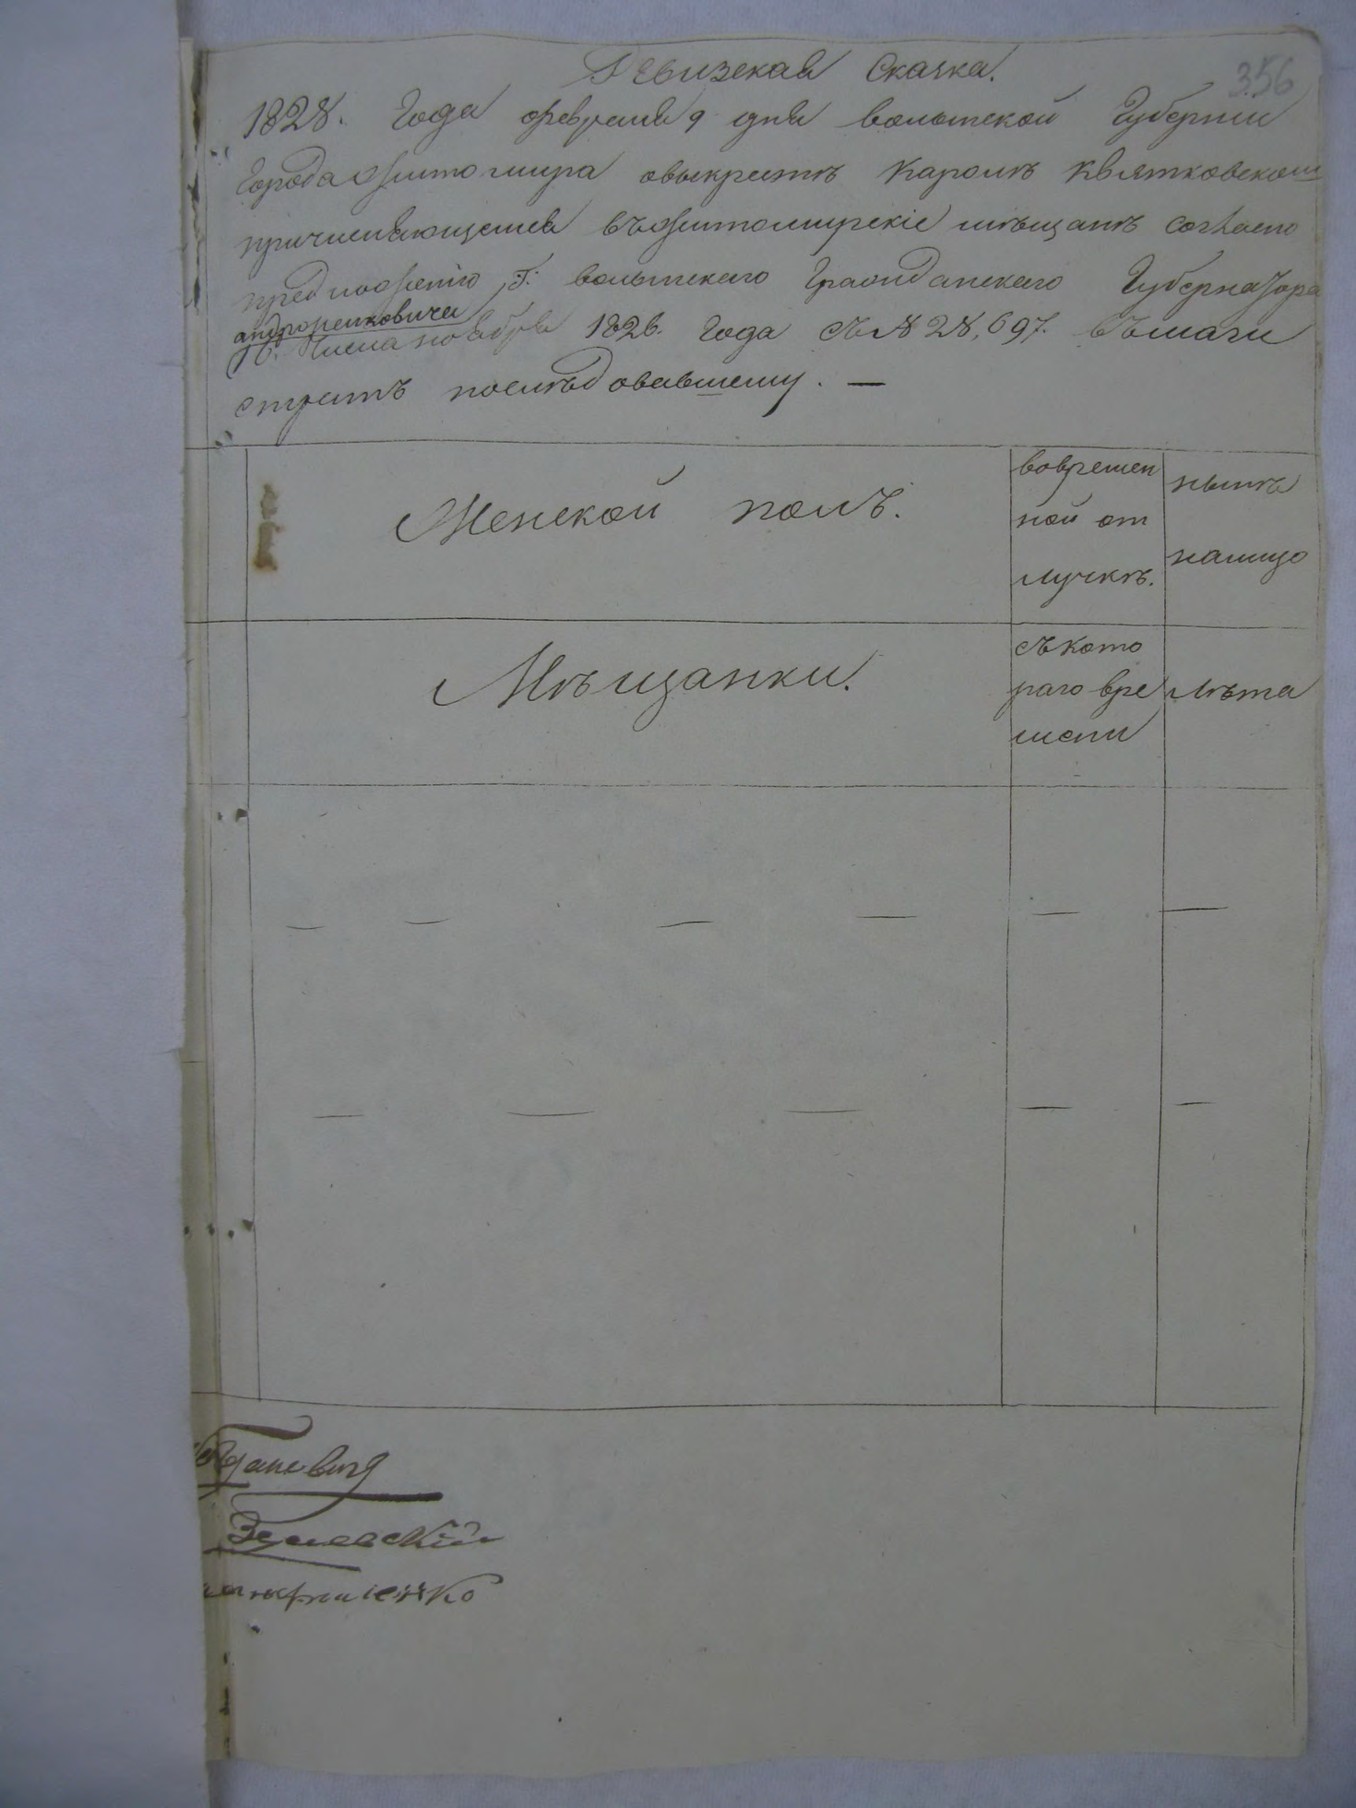 Ревизская Сказка.
356
1828. Года февраля 9 дня волынской Губернии
Города Житомира овыкрестъ Кароль Квятковском
причисляющемся въ житомирскіе мѣщанѣ согласно
предложенію Г: волынскаго Гражданскаго Губернатора
андржейковича
Числа ноября 1826. Года съ № 28,697. въ маги
стратъ последовавшему. —
Женской полъ.
вовремен
ной от
лучкѣ.
нынѣ
налицо
Мѣщанки.
съ кото
раго вре
мени
лѣта